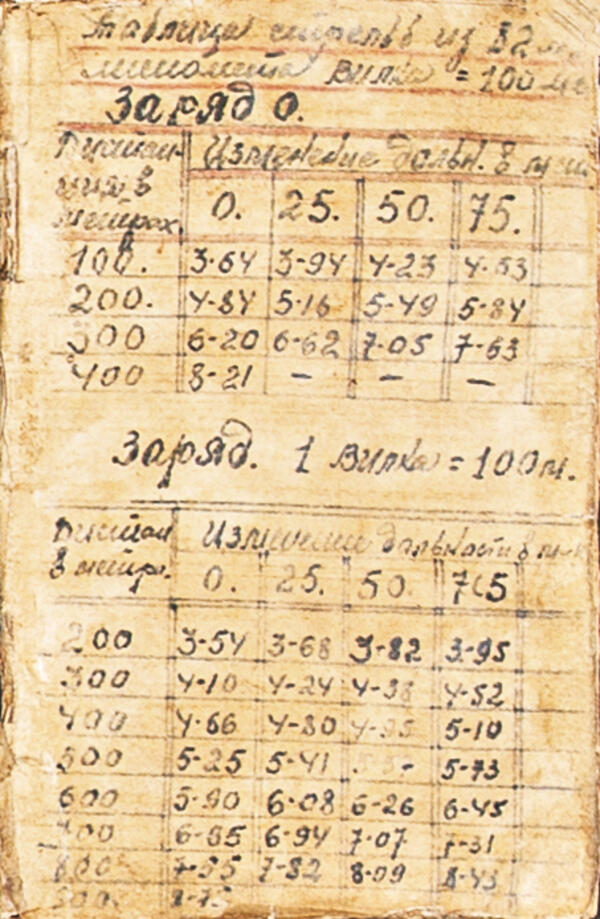 Таблица стрельб из 82 мм
миномета Вилка = 100 м
Заряд 0.
Дистан- Изменение дальн. в
ция в 0. 25. 50. 75.
метрах
100. 3-64 3-94 4-23 4-53
200. 4-84 5-16 5-49 5-84
300 6-20 6-62 7-05 7-63
400 8-21 — — —
Заряд. 1 Вилка = 100 м.
Дистан Изменении дальности в
в метра. 0. 25. 50. 75
200 3-54 3-68 3-82 3-95
300 4-10 4-24 4-38 4-52
400 4-66 4-80 4-95 5-10
500 5-25 5-41 5-73
600 5-90 6-08 6-26 6-45
700 6-94 7-07 7-31
800 7-55 7-82 8-09 8-43
900